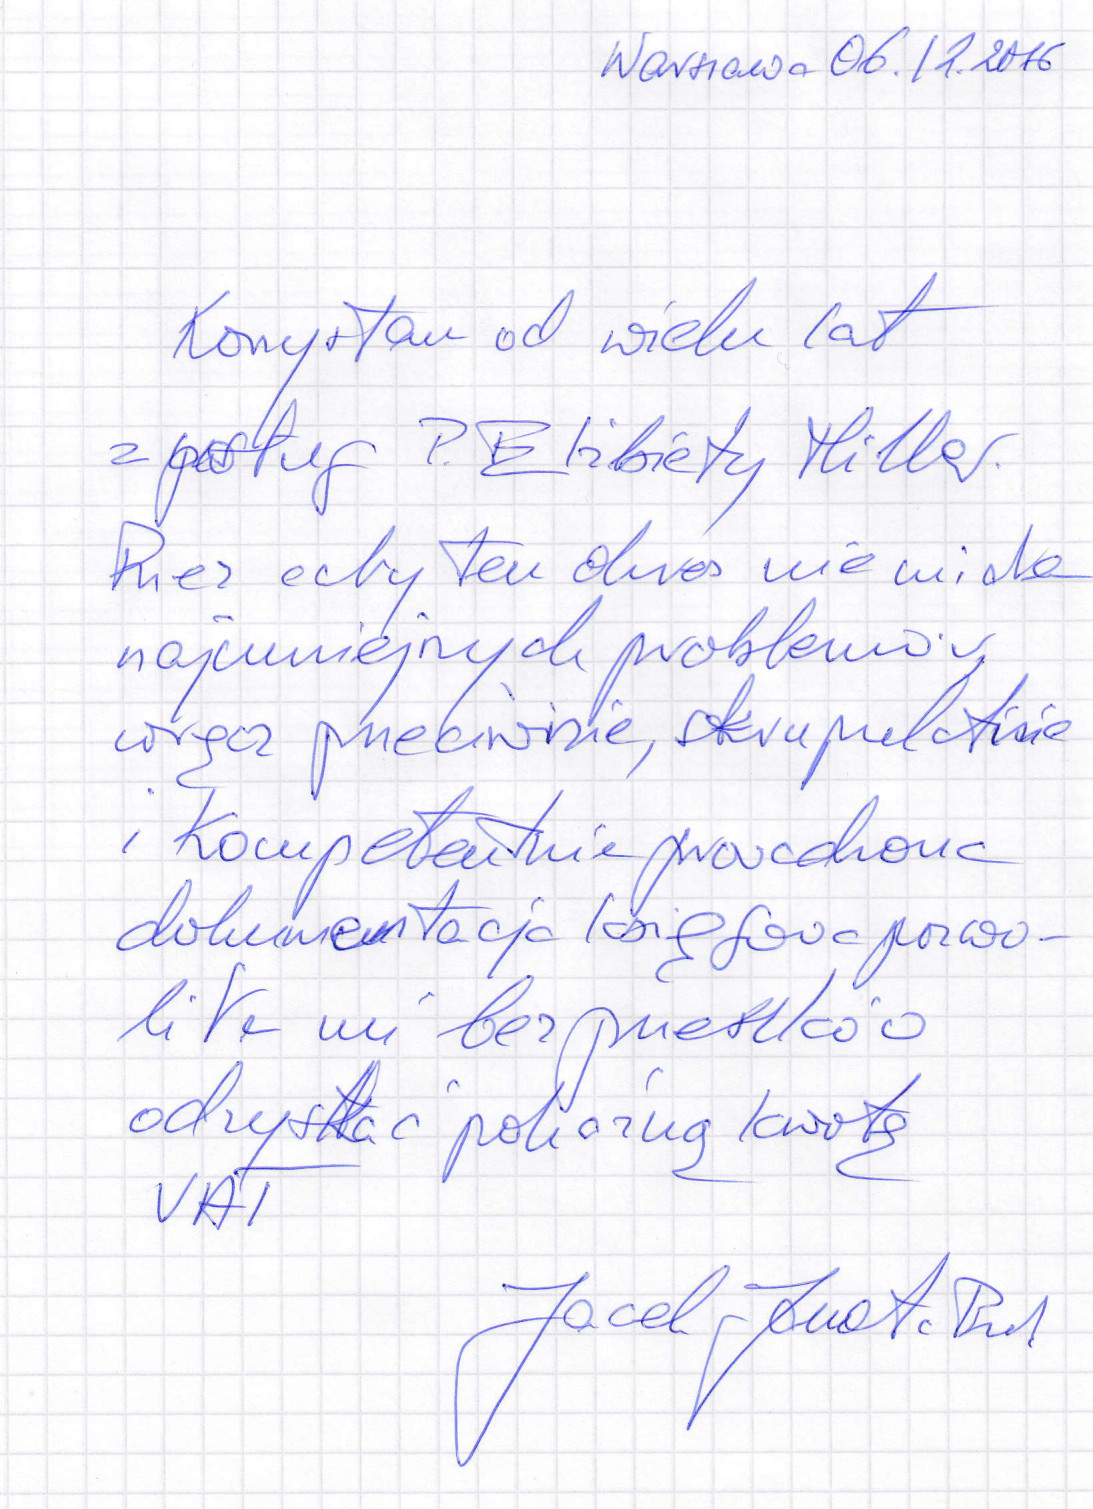 Warszawa 06.12.2016
Korzystam od wielu lat
z posług P. Elżbiety Miller.
Przez cały ten okres nie miała
najmniejszych problemów,
wręcz przeciwnie, skrupulatnie
i kompetentnie prowadzona
dokumentacja księgowa pozwo-
liła mi bez przeszkód
odzyskać pokaźną kwotę
VAT
Jacek